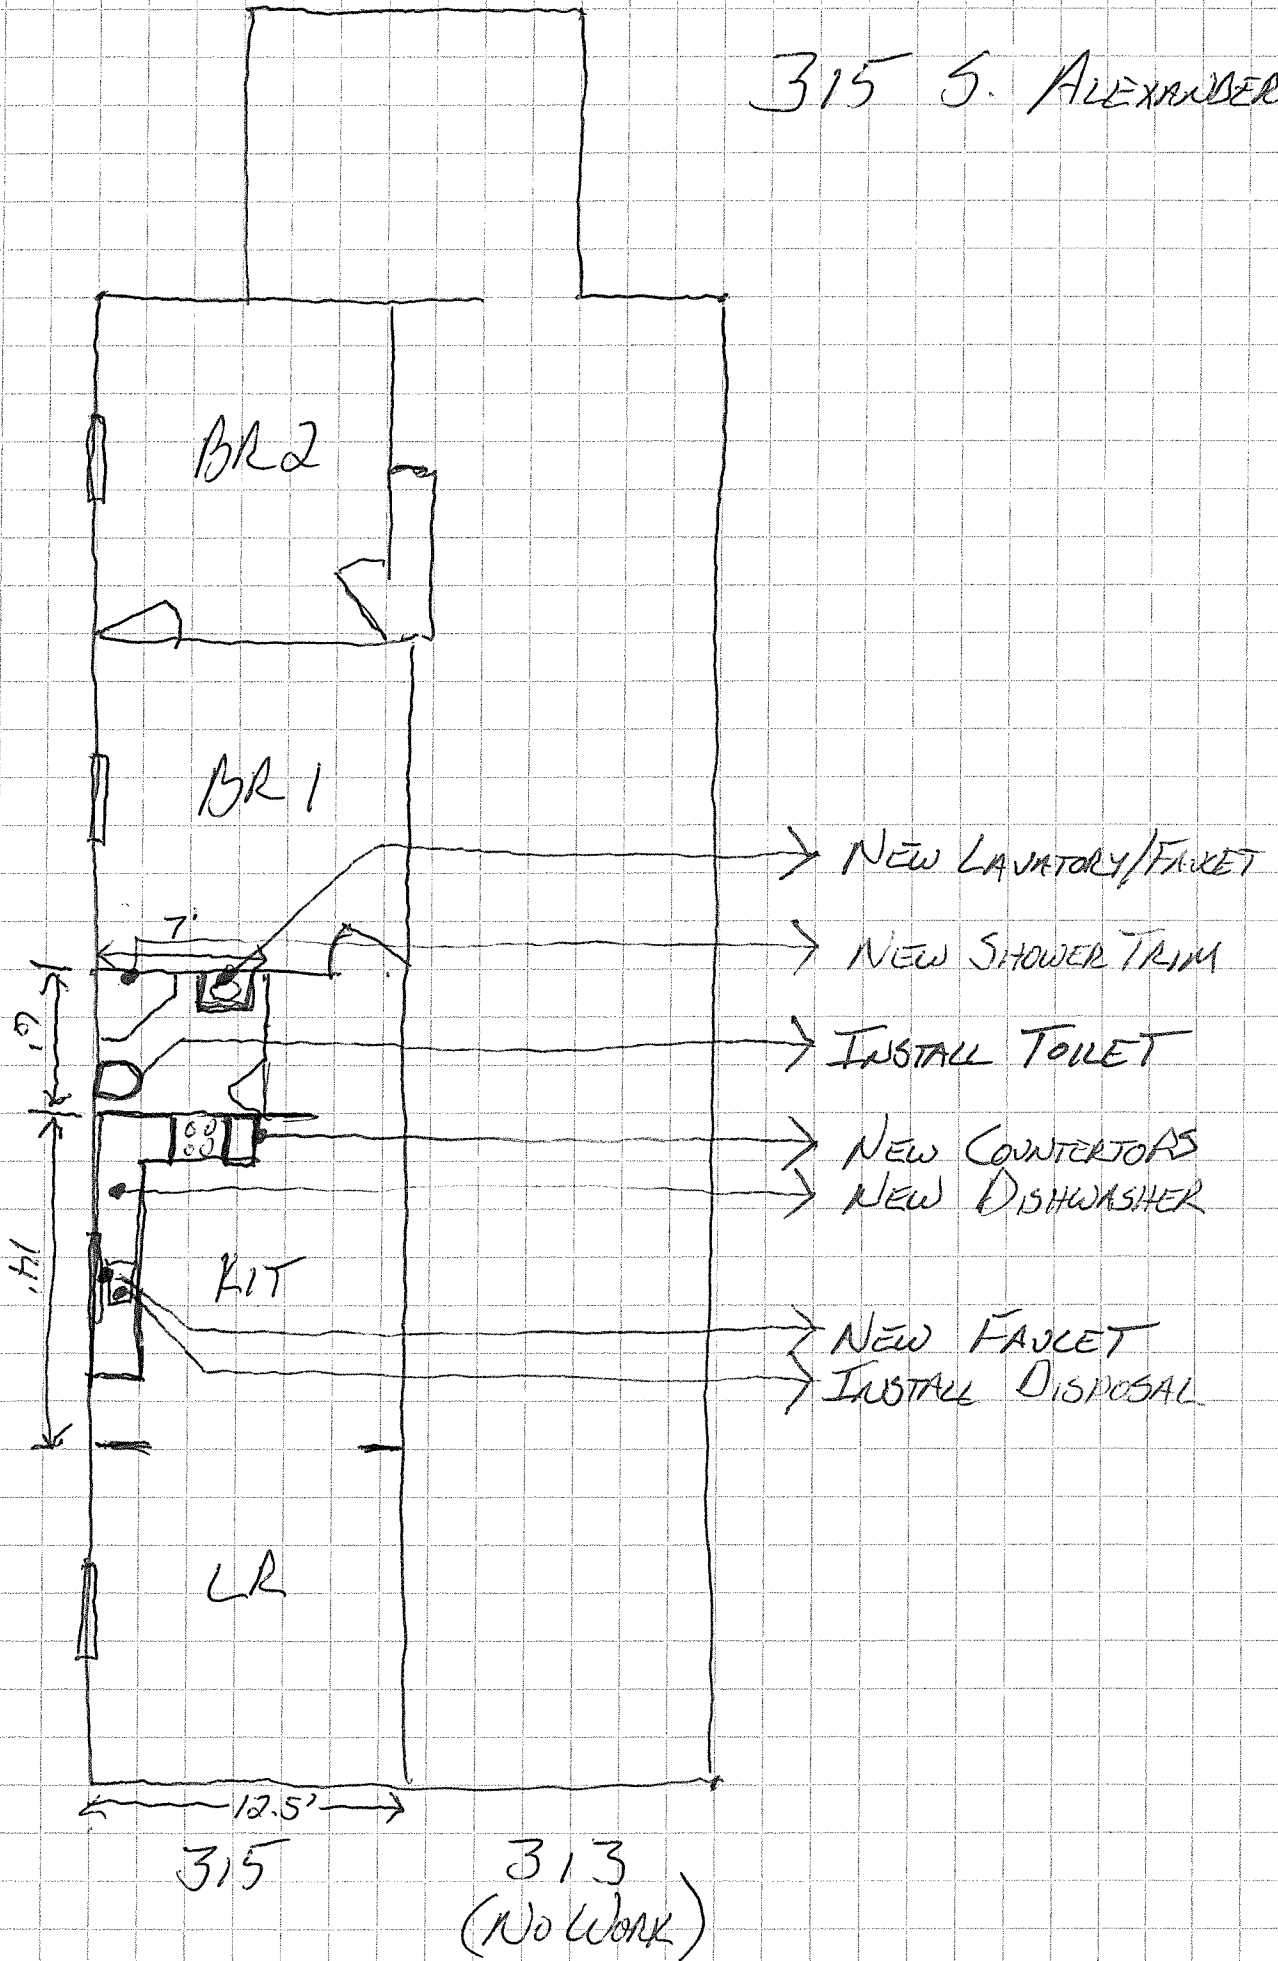 315 S. ALEXANDER
BR2
BR 1
NEW LAVATORY/FAUCET
7'
NEW SHOWER TRIM
6'
INSTALL TOILET
NEW COUNTERTOPS
NEW DISHWASHER
14'
KIT
NEW FAUCET
INSTALL DISPOSAL
LR
12.5'
315 313
(NO WORK)